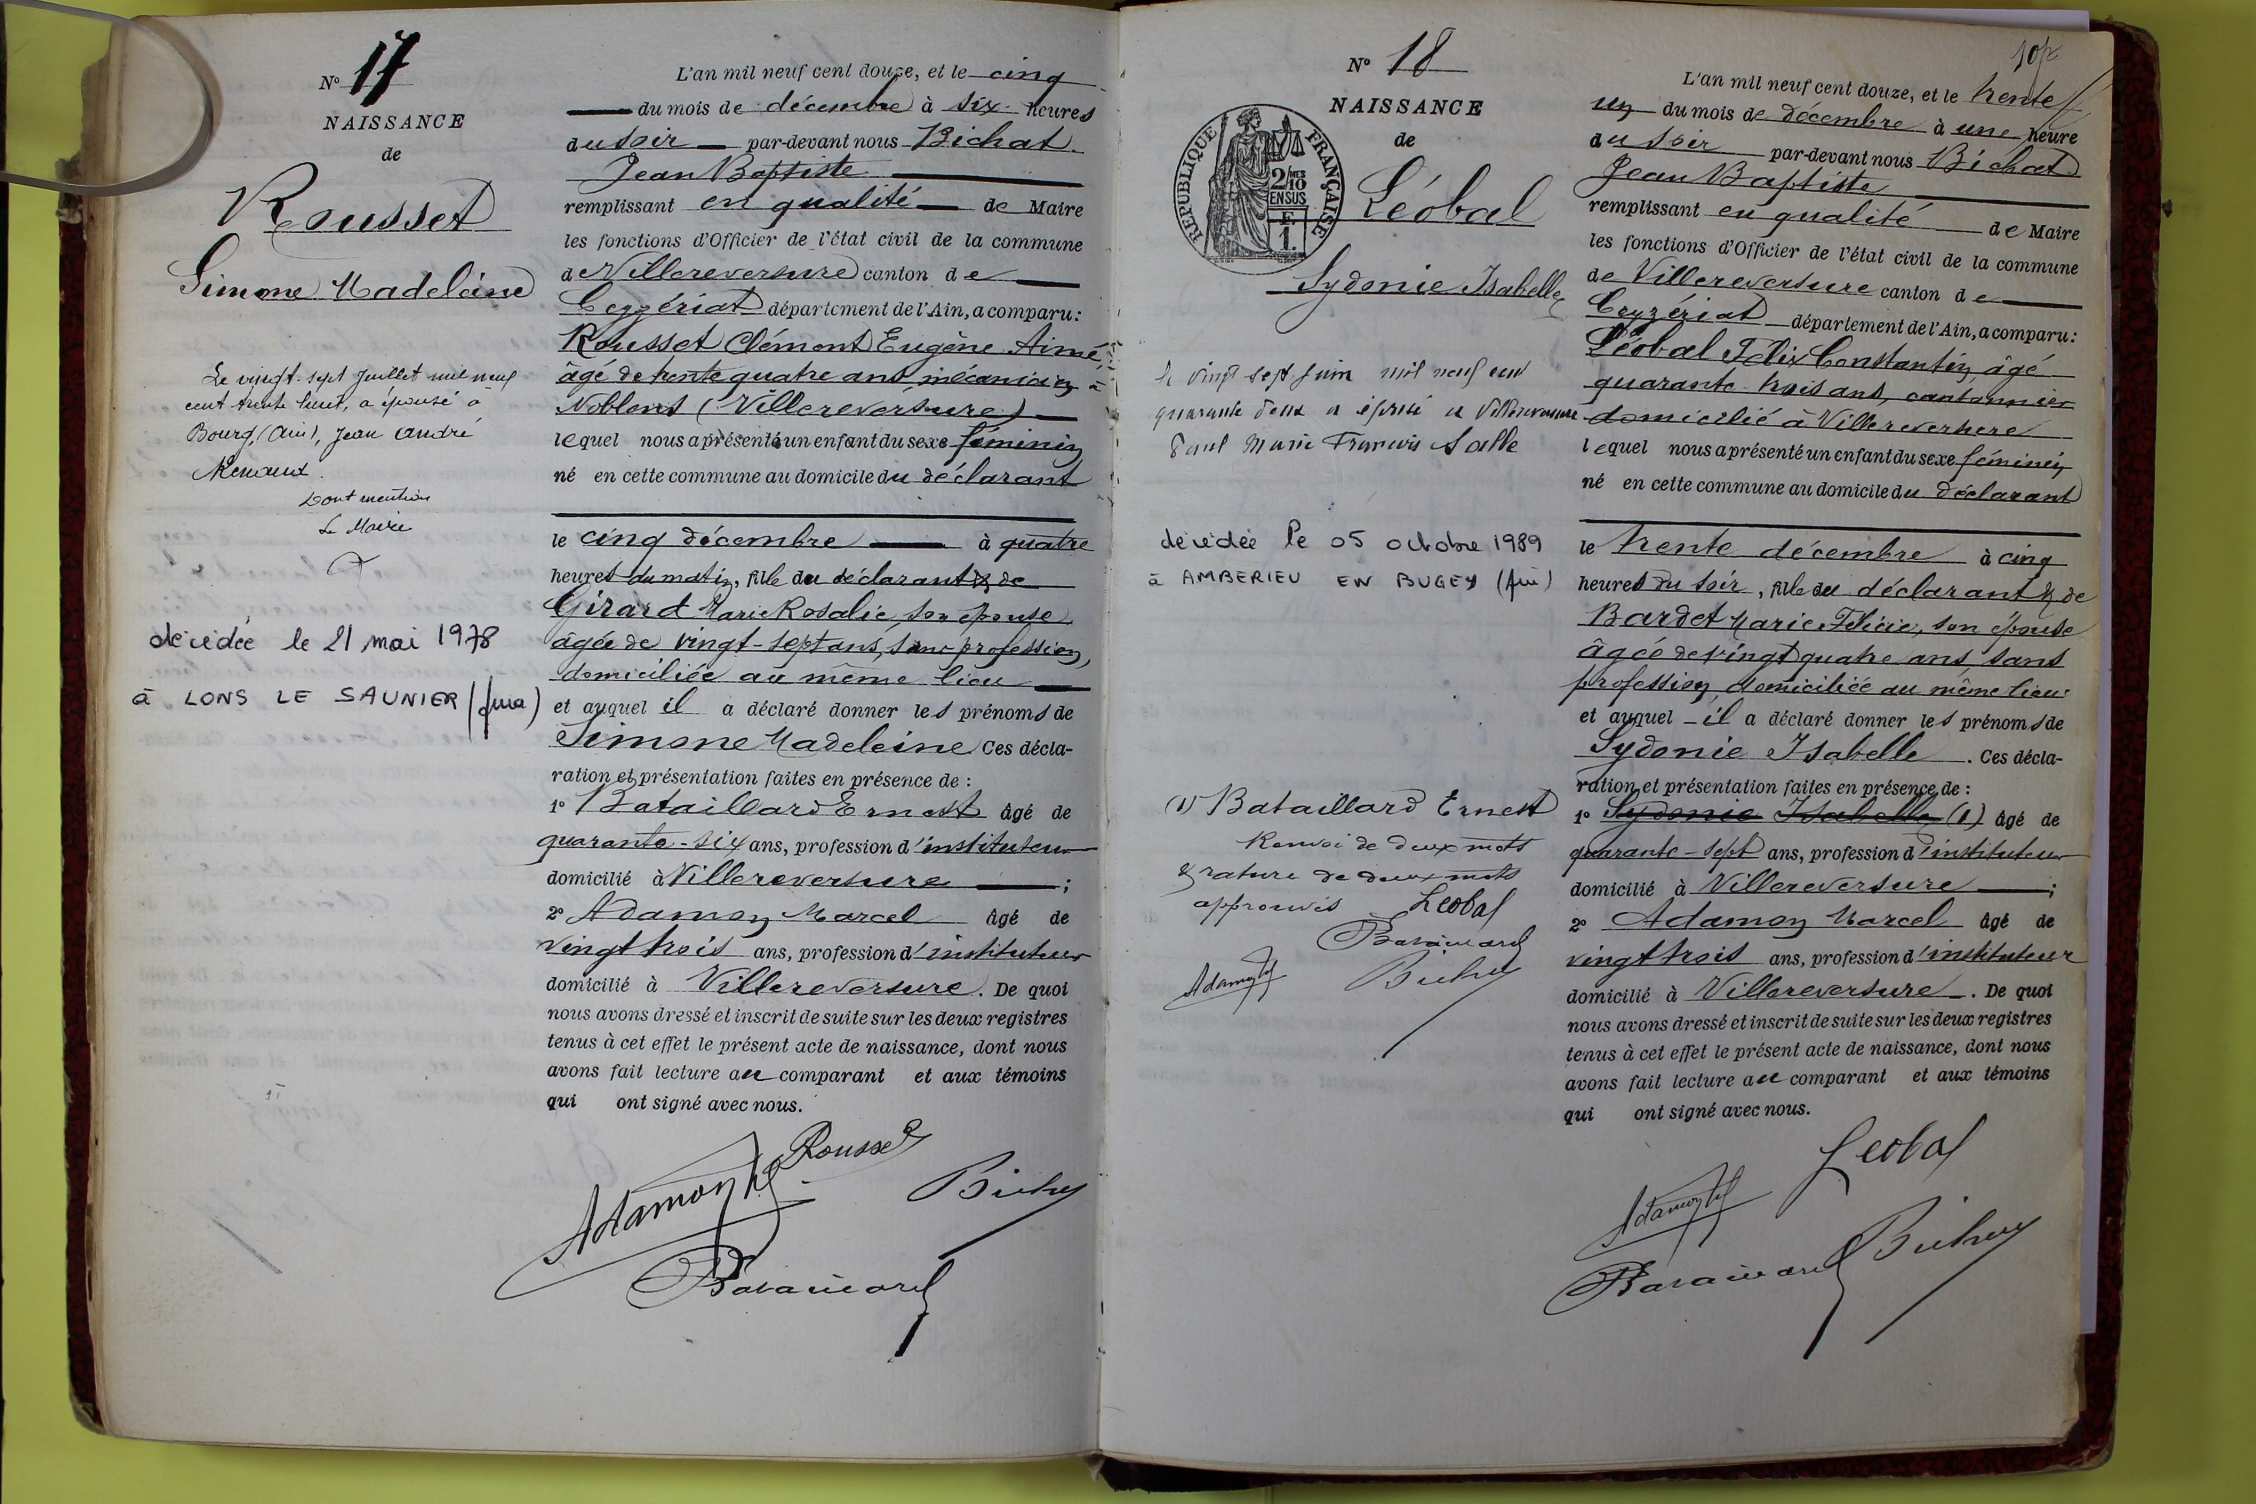 N° 17
NAISSANCE
de
Rousset
Simone Madeleine
Le vingt-sept juillet mil neuf
cent trente huit, a épousé à
Bourg, (Ain), Jean André
Renaud.
Dont mention
Le Maire
décédée le 21 mai 1978
à LONS LE SAUNIER (Jura)
L'an mil neuf cent douze, et le cinq
du mois de décembre à six heures
du soir par-devant nous Bichat
Jean Baptiste
remplissant en qualité de Maire
les fonctions d'Officier de l'état civil de la commune
de Villereversure canton de
Ceyzériat département de l'Ain, a comparu :
Rousset Clément Eugène Aimé,
âgé de trente quatre ans, mécanicien à
Noblens (Villereversure)
lequel nous a présenté un enfant du sexe féminin
né en cette commune au domicile du déclarant
le cinq décembre à quatre
heures du matin, fille du déclarant & de
Girard Marie Rosalie, son épouse
âgée de vingt-sept ans, sans profession,
domiciliée au même lieu
et auquel il a déclaré donner les prénoms de
Simone Madeleine Ces décla-
ration et présentation faites en présence de :
1° Bataillard Ernest âgé de
quarante-six ans, profession d'instituteur
domicilié à Villereversure ;
2° Adamon Marcel âgé de
vingt trois ans, profession d'instituteur
domicilié à Villereversure. De quoi
nous avons dressé et inscrit de suite sur les deux registres
tenus à cet effet le présent acte de naissance, dont nous
avons fait lecture au comparant et aux témoins
qui ont signé avec nous.
Rousset
Adamon Bichat
Bataillard
10
N° 18
NAISSANCE
de
REPUBLIQUE FRANÇAISE
2/10 MES
EN SUS
F
1.
Léobal
Sydonie Isabelle
le vingt sept juin mil neuf cent
quarante deux a épousé à Villereversure
Paul Marie François Salle
décédée le 05 octobre 1989
à AMBERIEU EN BUGEY (Ain)
(1) Bataillard Ernest
Renvoi de deux mots
& rature de deux mots
approuvés Leobal
Bataillard
Adamon Bichat
L'an mil neuf cent douze, et le trente
un du mois de décembre à une heure
du soir par-devant nous Bichat
Jean Baptiste
remplissant en qualité de Maire
les fonctions d'Officier de l'état civil de la commune
de Villereversure canton de
Ceyzériat département de l'Ain, a comparu :
Léobal Félix Constantin, âgé
quarante trois ans, cantonnier
domicilié à Villereversure
lequel nous a présenté un enfant du sexe féminin
né en cette commune au domicile du déclarant
le trente décembre à cinq
heures du soir, fille du déclarant & de
Bardet Marie Félicie, son épouse
âgée de vingt quatre ans, sans
profession, domiciliée au même lieu
et auquel il a déclaré donner les prénoms de
Sydonie Isabelle. Ces décla-
ration et présentation faites en présence de :
1° Sydonie Isabelle (1) âgé de
quarante-sept ans, profession d'instituteur
domicilié à Villereversure ;
2° Adamon Marcel âgé de
vingt trois ans, profession d'instituteur
domicilié à Villereversure. De quoi
nous avons dressé et inscrit de suite sur les deux registres
tenus à cet effet le présent acte de naissance, dont nous
avons fait lecture au comparant et aux témoins
qui ont signé avec nous.
Leobal
Adamon
Bataillard Bichat